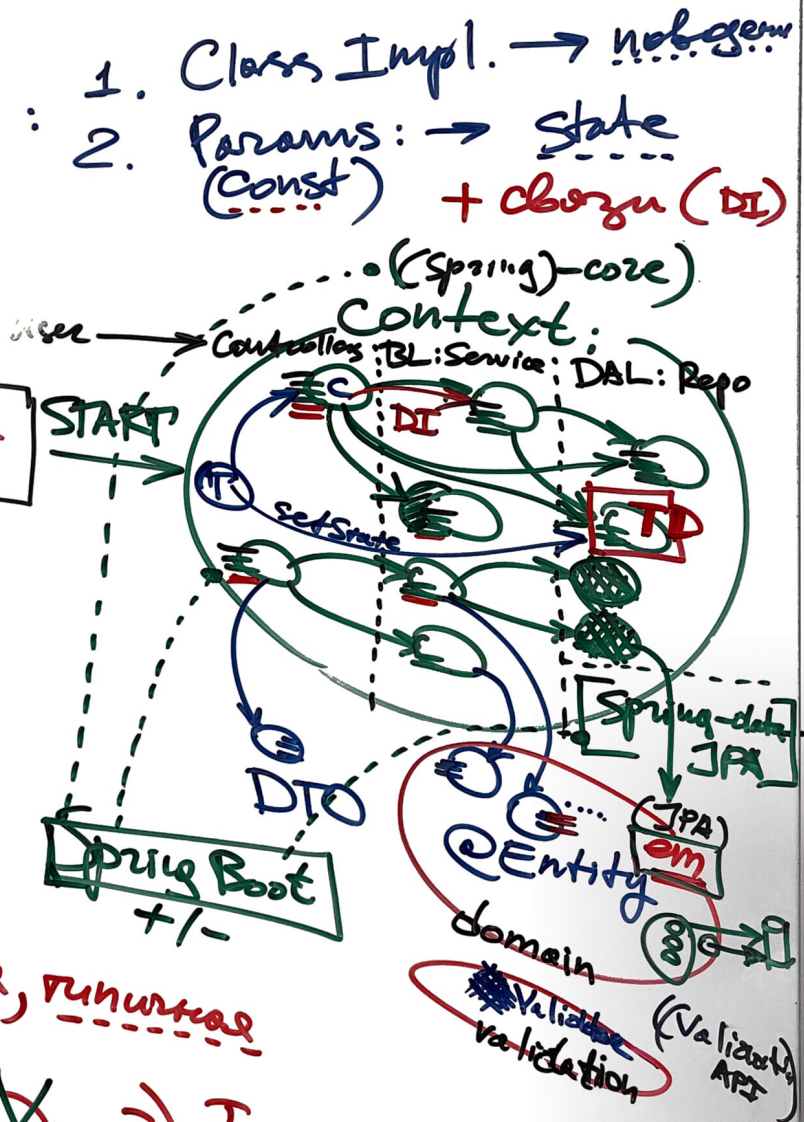 1. Class Impl. → поведен
: 2. Params: → state
(const) + связи (DI)
(Spring)-core)
Context:
user → Controllers BL: Service DAL: Repo
START
C
DI
T
setState
TD
Spring-data
JPA
DTO
(JPA)
em
@Entity
Spring Boot
+/-
domain
, типичная
Validator
validation
(Validat.
API)